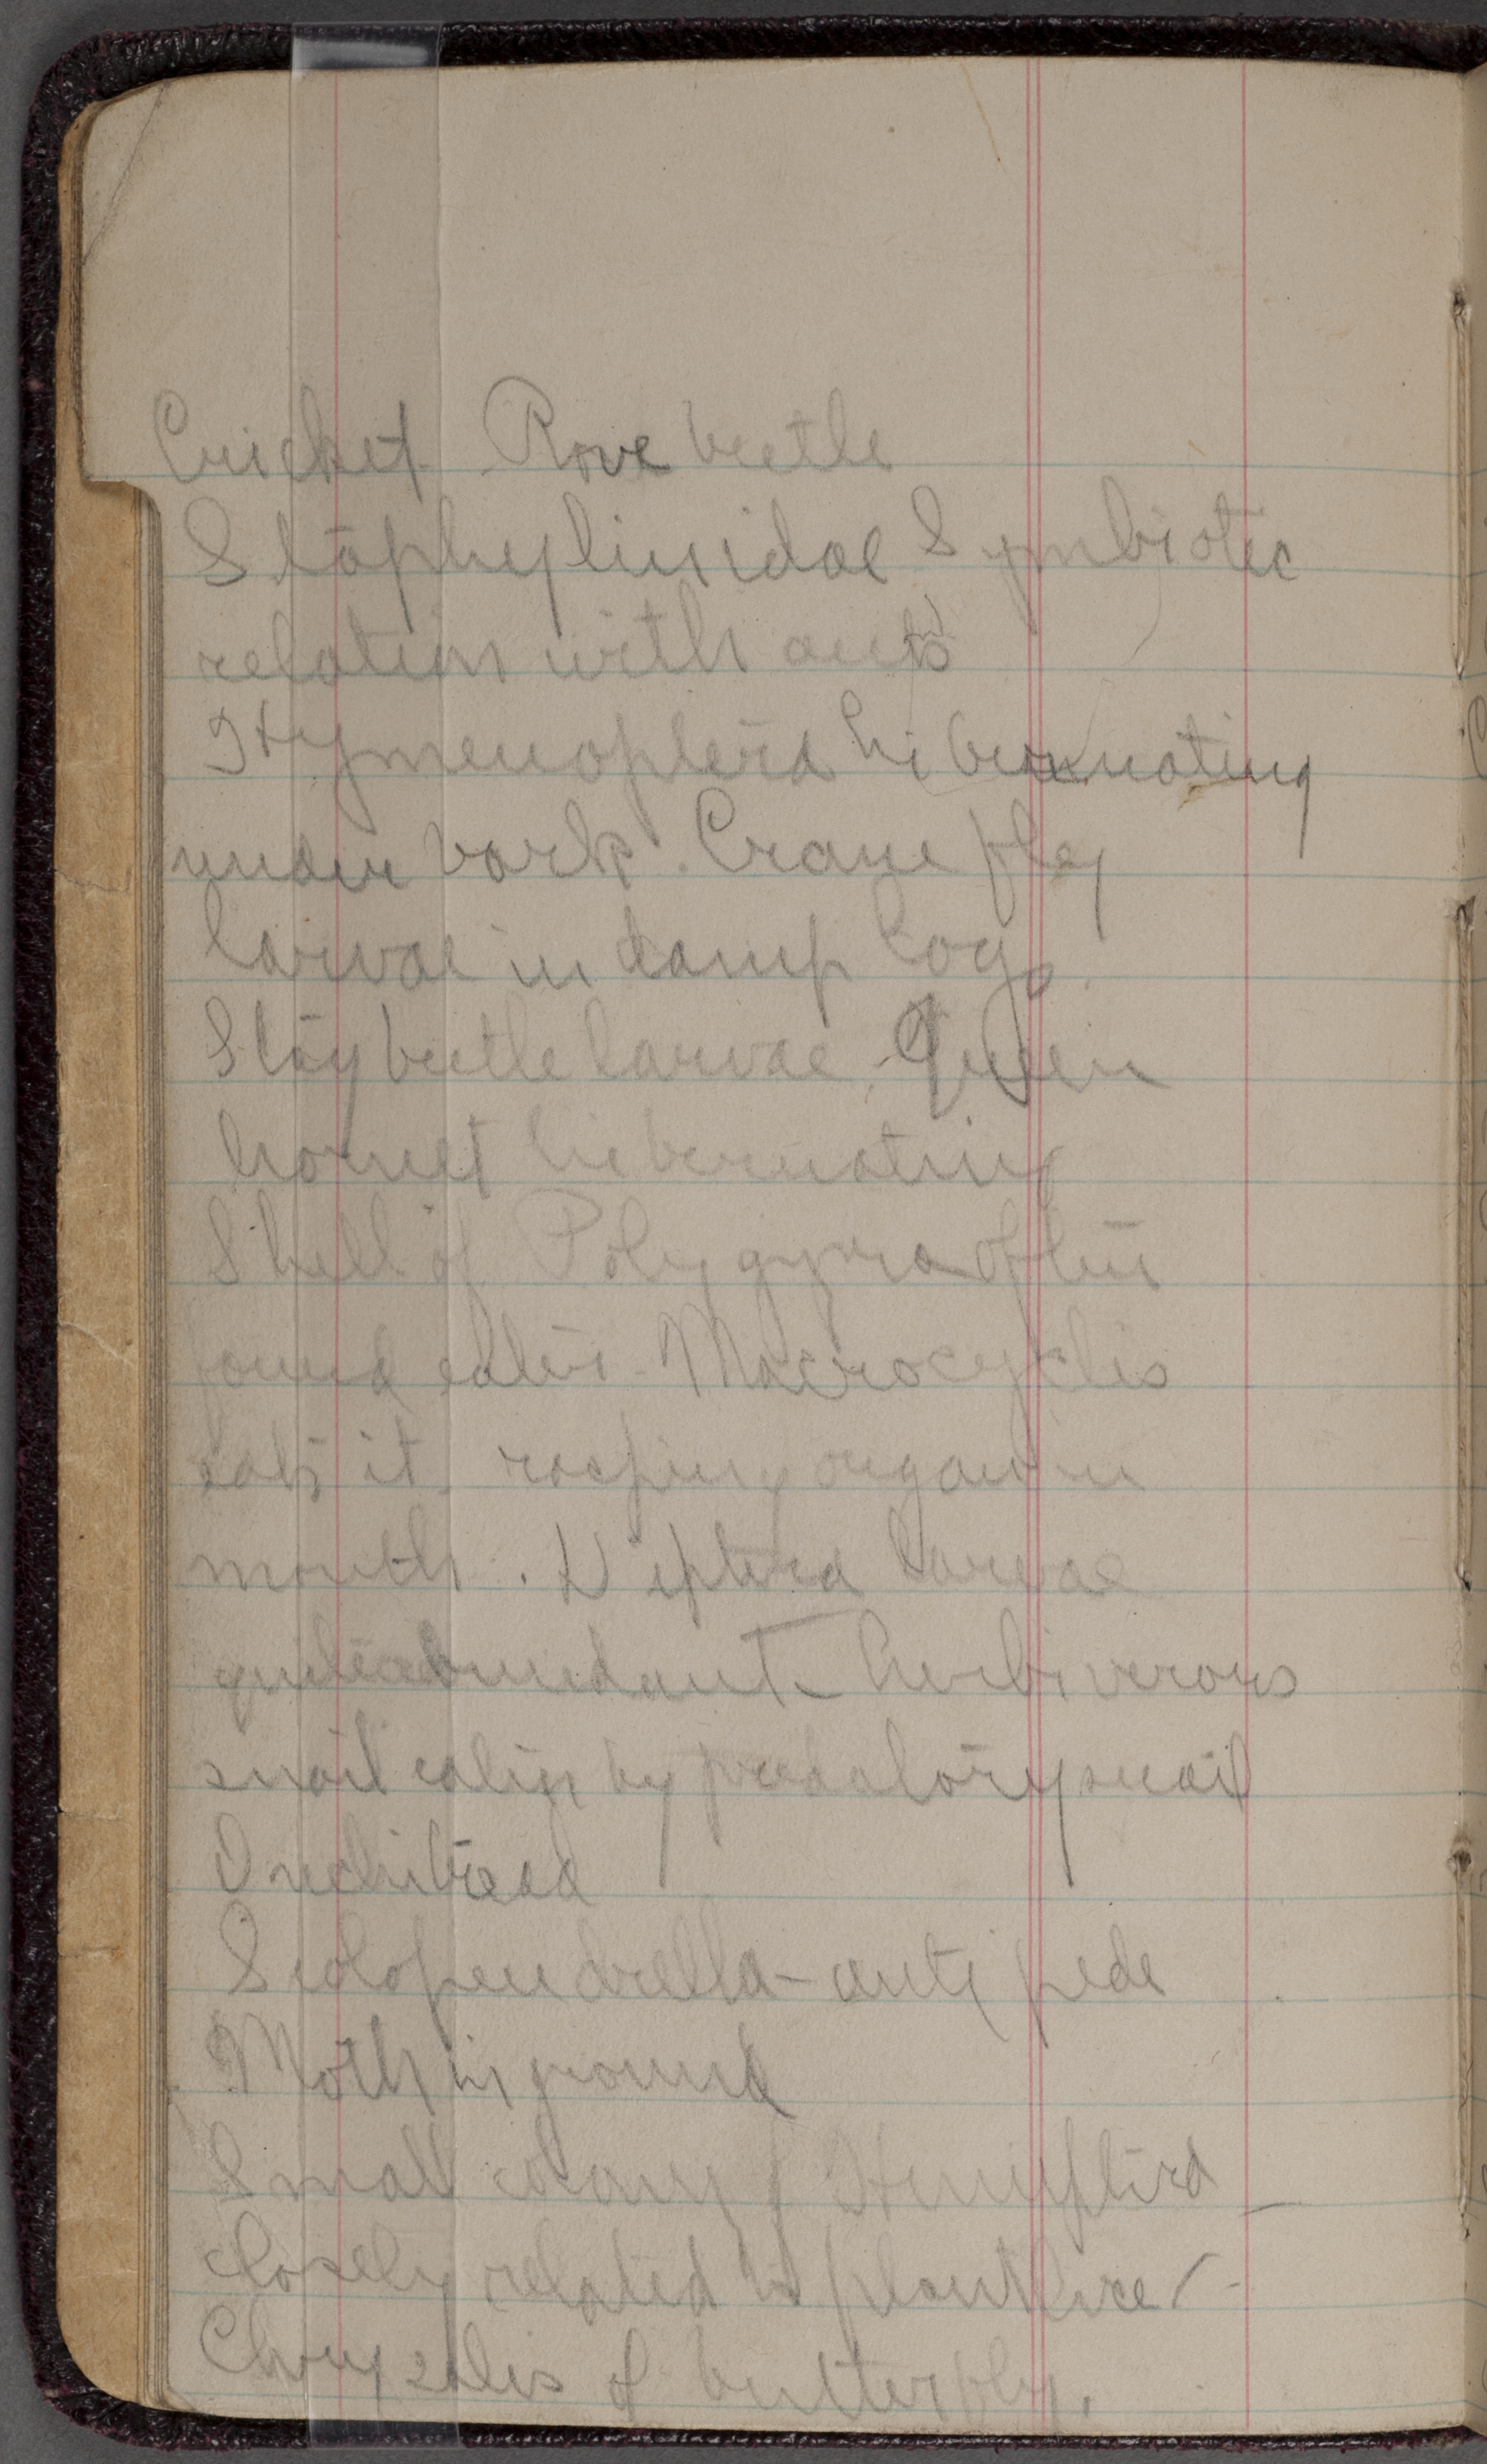 Cricket. Rove beetle
Staphylinidae Symbiotic
relation with ants
Hymenoptera hibernating
under bark. Crane fly
larvae in damp log.
Stag beetle larvae. Queen
hornet hibernating
Shell of Polygyra often
found eaten - Macrocyclis
eats it, rasping organ in
mouth. Diptera larvae
quite abundant - herbiverous
snail eaten by predatory snail
Scolopendrella - centipede
Moth in ground
Small Hemiptera -
closely related to plant lice -
Chrysalis of butterfly.